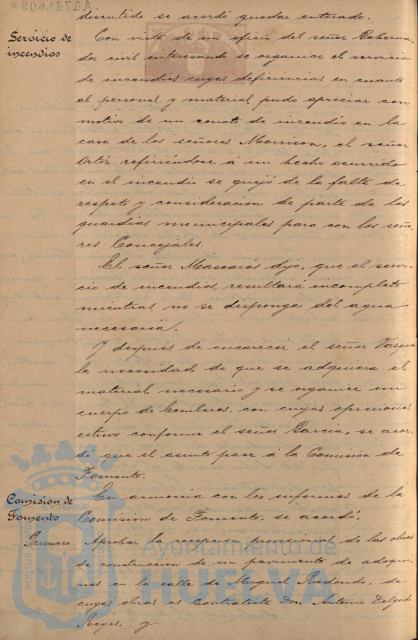 discutido se acordó quedar enterado.
Servicio de incendios
Con vista de un oficio del señor Goberna-
dor civil interesando se organice el servicio
de incendios cuyas deficiencias en cuanto
al personal y material pudo apreciar con
motivo de un conato de incendio en la
casa de los señores Morrison, el señor
Ortiz refiriéndose á un hecho ocurrido
en el incendio se quejó de la falta de
respeto y consideracion de parte de los
guardias municipales para con los seño-
res Concejales.
El señor Mascarós dijo, que el servi-
cio de incendios, resultará incompleto
mientras no se disponga del agua
necesaria.
Y después de encarecer el señor
la necesidad de que se adquiera el
material necesario y se organice un
cuerpo de bomberos, con cuyas opiniones
estuvo conforme el señor Garcia, se acor-
dó que el asunto pase á la Comision de
Fomento.
Comision de Fomento
En armonia con los informes de la
Comision de Fomento, se acordó.
Primero. Aprobar la recepcion provisional de las obras
de construccion de un pavimento de adoqui-
nes en la calle de Miguel Redondo, de
cuyas obras es contratista Don Antonio Delgado
Reyes, y
Ayuntamiento de
HUELVA